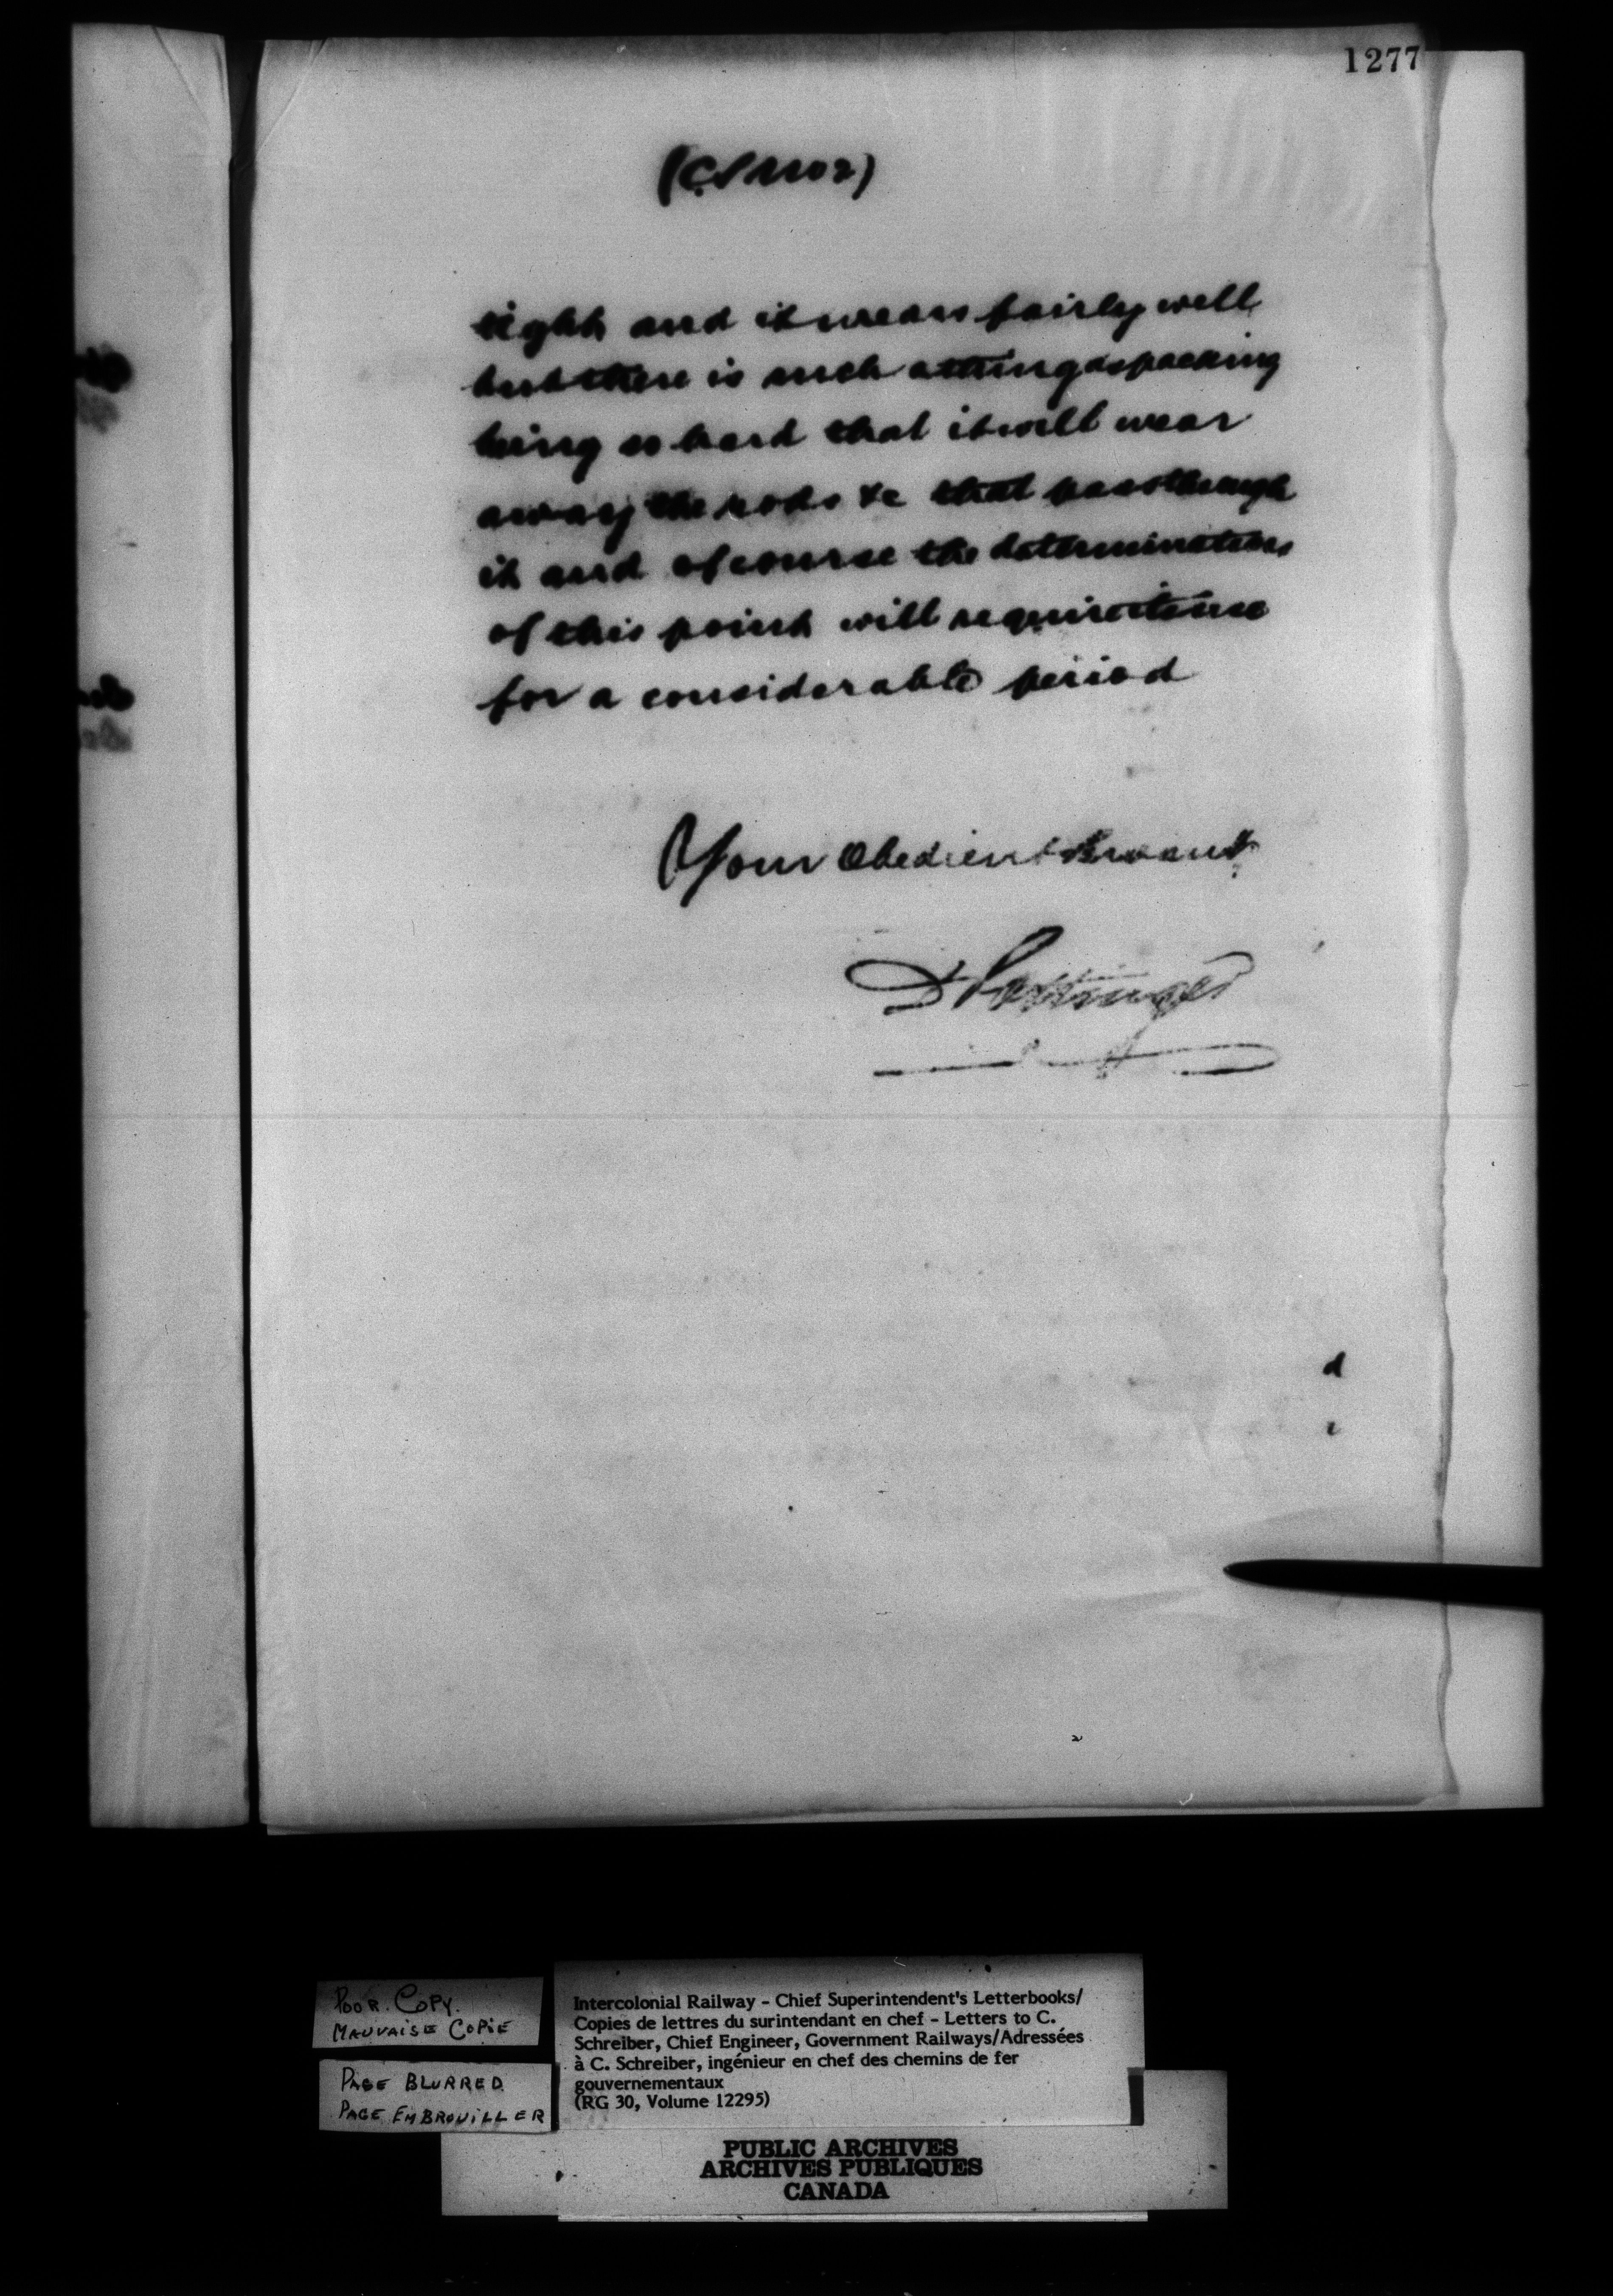 1277
(CS No 2)
tight and it wears fairly well
but there is such a thing as packing
being so hard that it will wear
away the rods &c that pass through
it and of course the determination
of this point will require time
for a considerable period
Your Obedient Servant
D Pottinger
d
Poor Copy.
Mauvaise Copie
Page Blurred
Page Embrouiller
Intercolonial Railway - Chief Superintendent's Letterbooks/
Copies de lettres du surintendant en chef - Letters to C.
Schreiber, Chief Engineer, Government Railways/Adressées
à C. Schreiber, ingénieur en chef des chemins de fer
gouvernementaux
(RG 30, Volume 12295)
PUBLIC ARCHIVES
ARCHIVES PUBLIQUES
CANADA